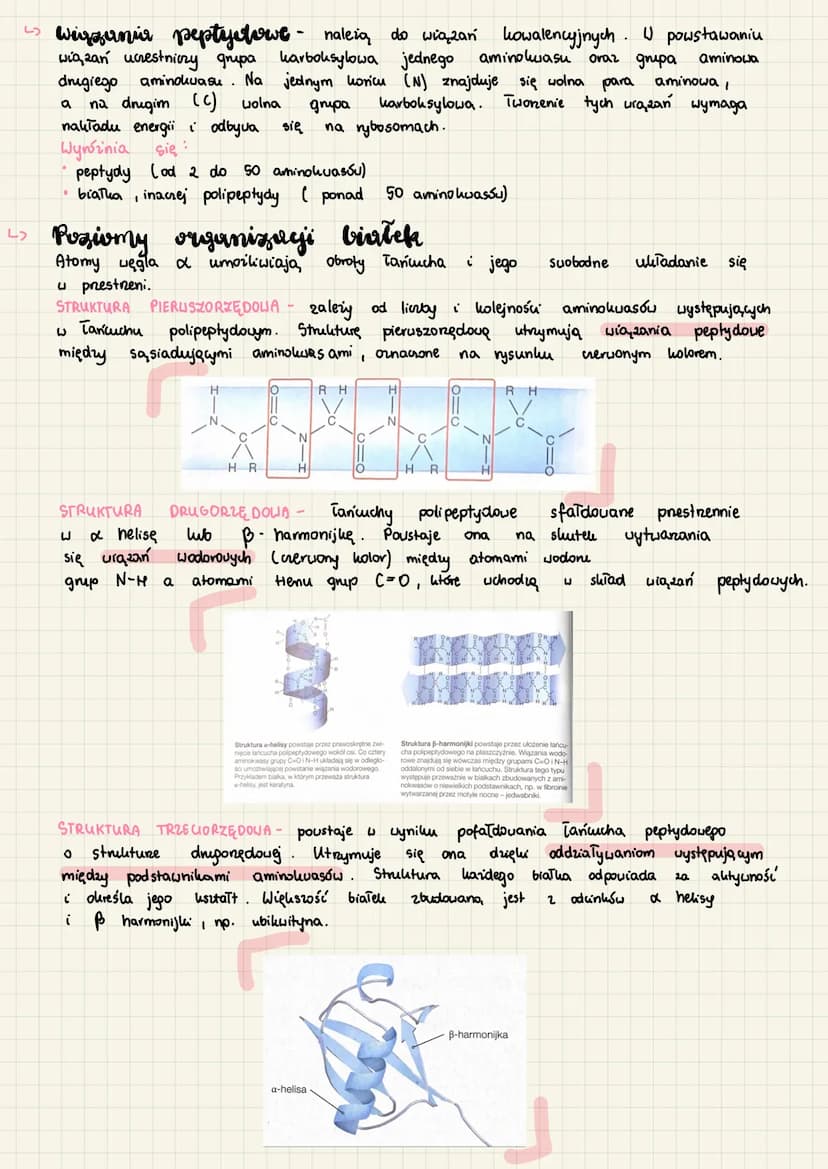 ↳ Wiązania peptydowe - należą do wiązań kowalencyjnych. W powstawaniu
wiązań uczestniczy grupa karboksylowa jednego aminokwasu oraz grupa aminowa
drugiego aminokwasu. Na jednym końcu (N) znajduje się wolna para aminowa,
a na drugim (C) wolna grupa karboksylowa. Tworzenie tych wiązań wymaga
nakładu energii i odbywa się na rybosomach.
Wyróżnia się:
• peptydy (od 2 do 50 aminokwasów)
• białka, inaczej polipeptydy ( ponad 50 aminokwasów)
↳ Poziomy organizacji białek
Atomy węgla α umożliwiają obroty łańcucha i jego swobodne układanie się
w przestrzeni.
STRUKTURA PIERWSZORZĘDOWA - zależy od liczby i kolejności aminokwasów występujących
w łańcuchu polipeptydowym. Strukturę pierwszorzędową utrzymują wiązania peptydowe
między sąsiadującymi aminokwasami, oznaczone na rysunku czerwonym kolorem.
H O R H H O R H
N C C N C C
C N C C N C
H R H O H R H O
STRUKTURA DRUGORZĘDOWA - łańcuchy polipeptydowe sfałdowane przestrzennie
w α helisę lub β-harmonijkę. Powstaje ona na skutek wytwarzania
się wiązań wodorowych (czerwony kolor) między atomami wodoru
grup N-H a atomami tlenu grup C=O, które wchodzą w skład wiązań peptydowych.
Struktura α-helisy powstaje przez prawoskrętne zwi-
nięcie łańcucha polipeptydowego wokół osi. Co cztery
aminokwasy grupy C=O i N–H układają się w odległo-
ści umożliwiającej powstanie wiązania wodorowego.
Przykładem białka, w którym przeważa struktura
α-helisy, jest keratyna.
Struktura β-harmonijki powstaje przez ułożenie łańcu-
cha polipeptydowego na płaszczyźnie. Wiązania wodo-
rowe znajdują się wówczas między grupami C=O i N–H
oddalonymi od siebie w łańcuchu. Struktura tego typu
występuje przeważnie w białkach zbudowanych z ami-
nokwasów o niewielkich podstawnikach, np. w fibroinie
wytwarzanej przez motyle nocne – jedwabniki.
STRUKTURA TRZECIORZĘDOWA - powstaje w wyniku pofałdowania łańcucha peptydowego
o strukturze drugorzędowej. Utrzymuje się ona dzięki oddziaływaniom występującym
między podstawnikami aminokwasów. Struktura każdego białka odpowiada za aktywność
i określa jego kształt. Większość białek zbudowana jest z odcinków α helisy
i β harmonijki, np. ubikwityna.
β-harmonijka
α-helisa